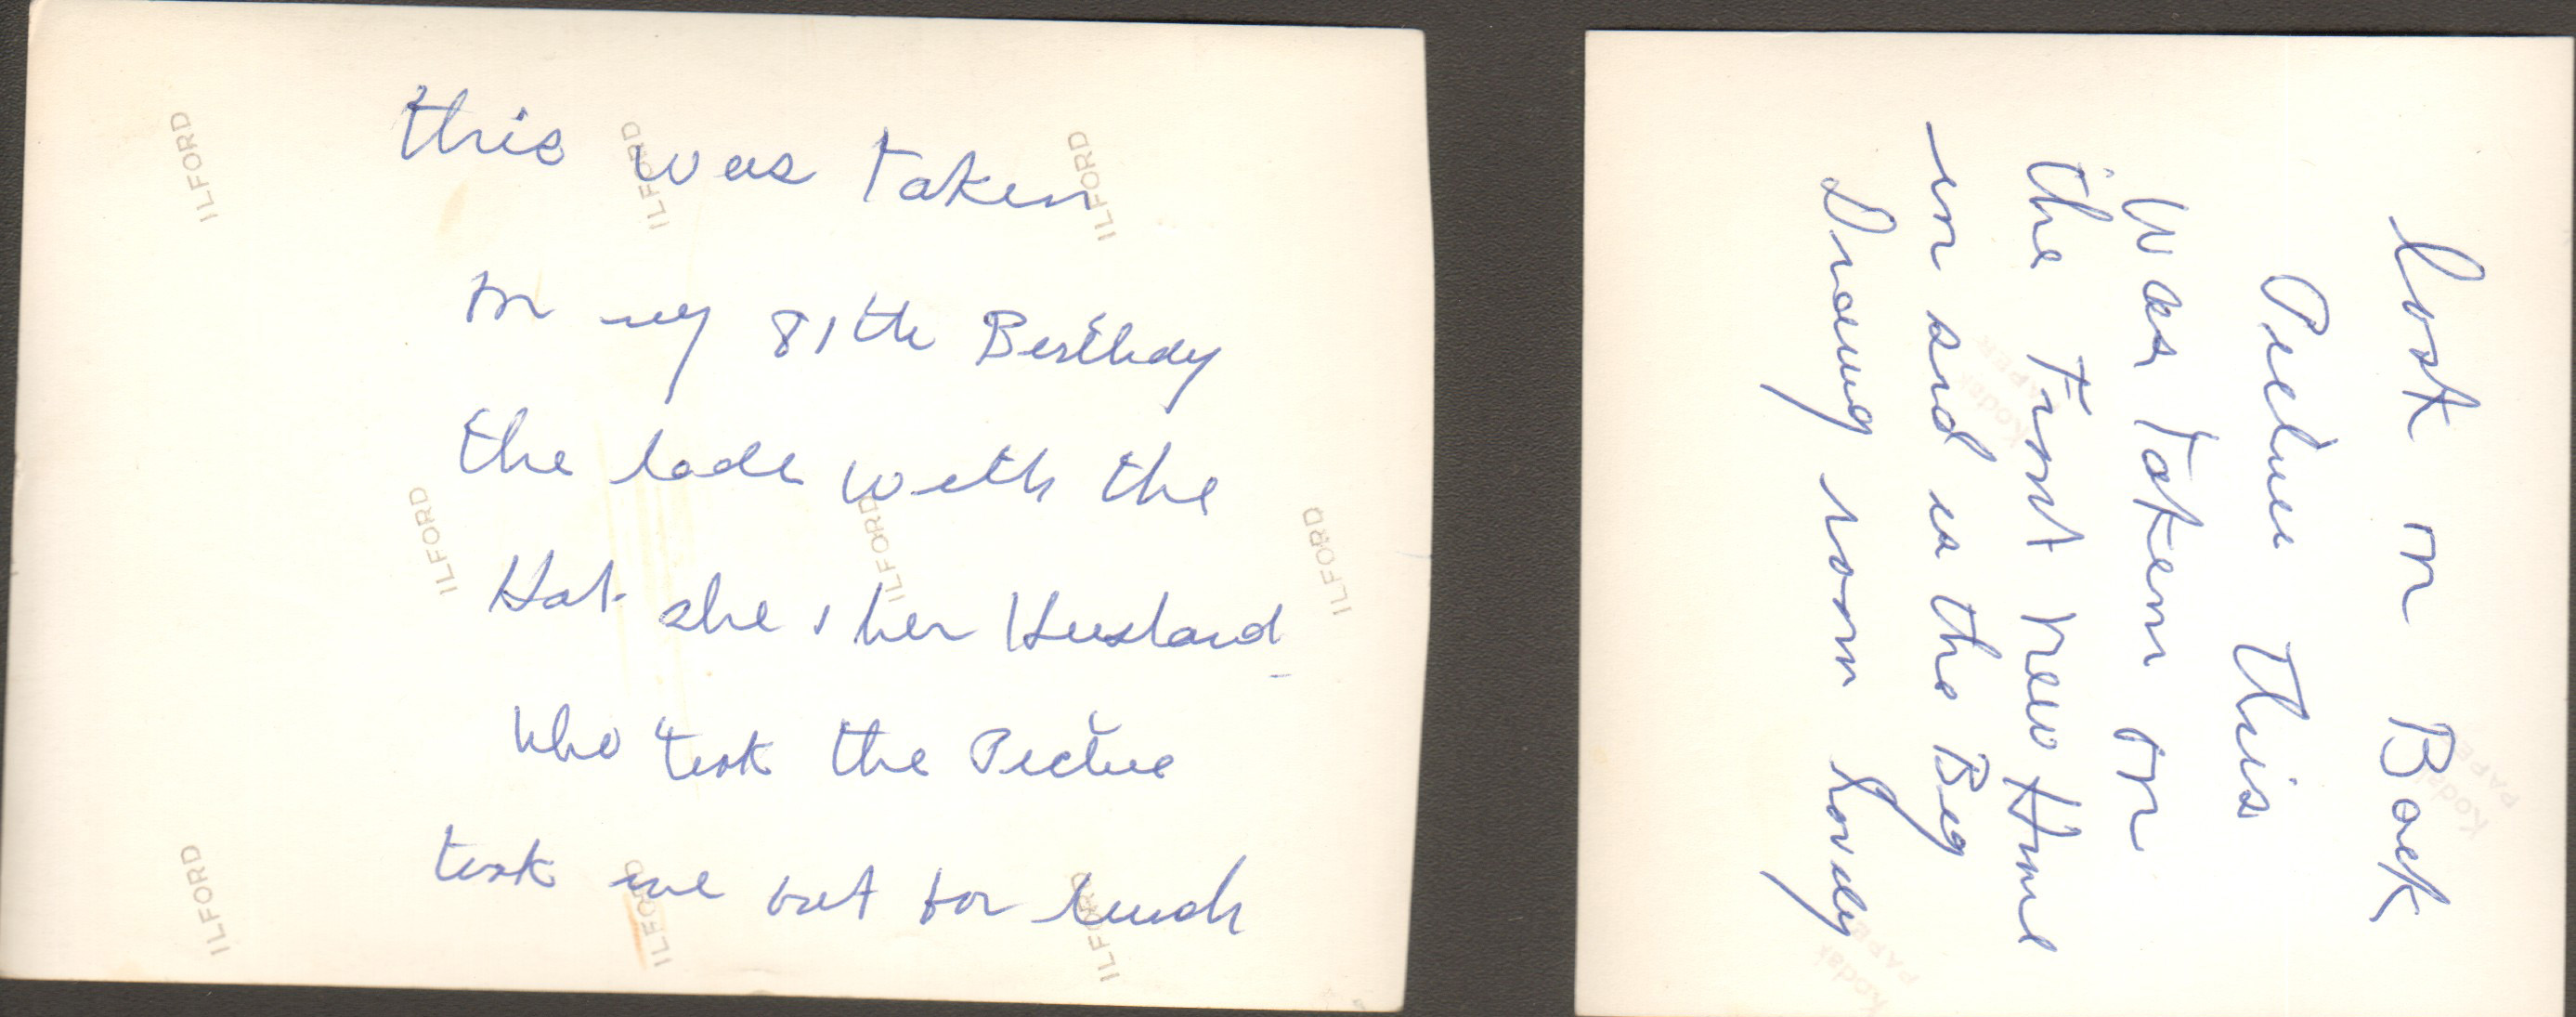 this was taken
on my 81th Birthday
the lade with the
Hat she & her Husband
who took the Picture
took me out for lunch
look on Back
Picture this
Was Taken on
the First new Home
in and is the Big
Drawing room lovely
ILFORD
ILFORD
ILFORD
ILFORD
ILFORD
ILFORD
ILFORD
ILFORD
ILFORD
Kodak
PAPER
Kodak
PAPER
Kodak
PAPER